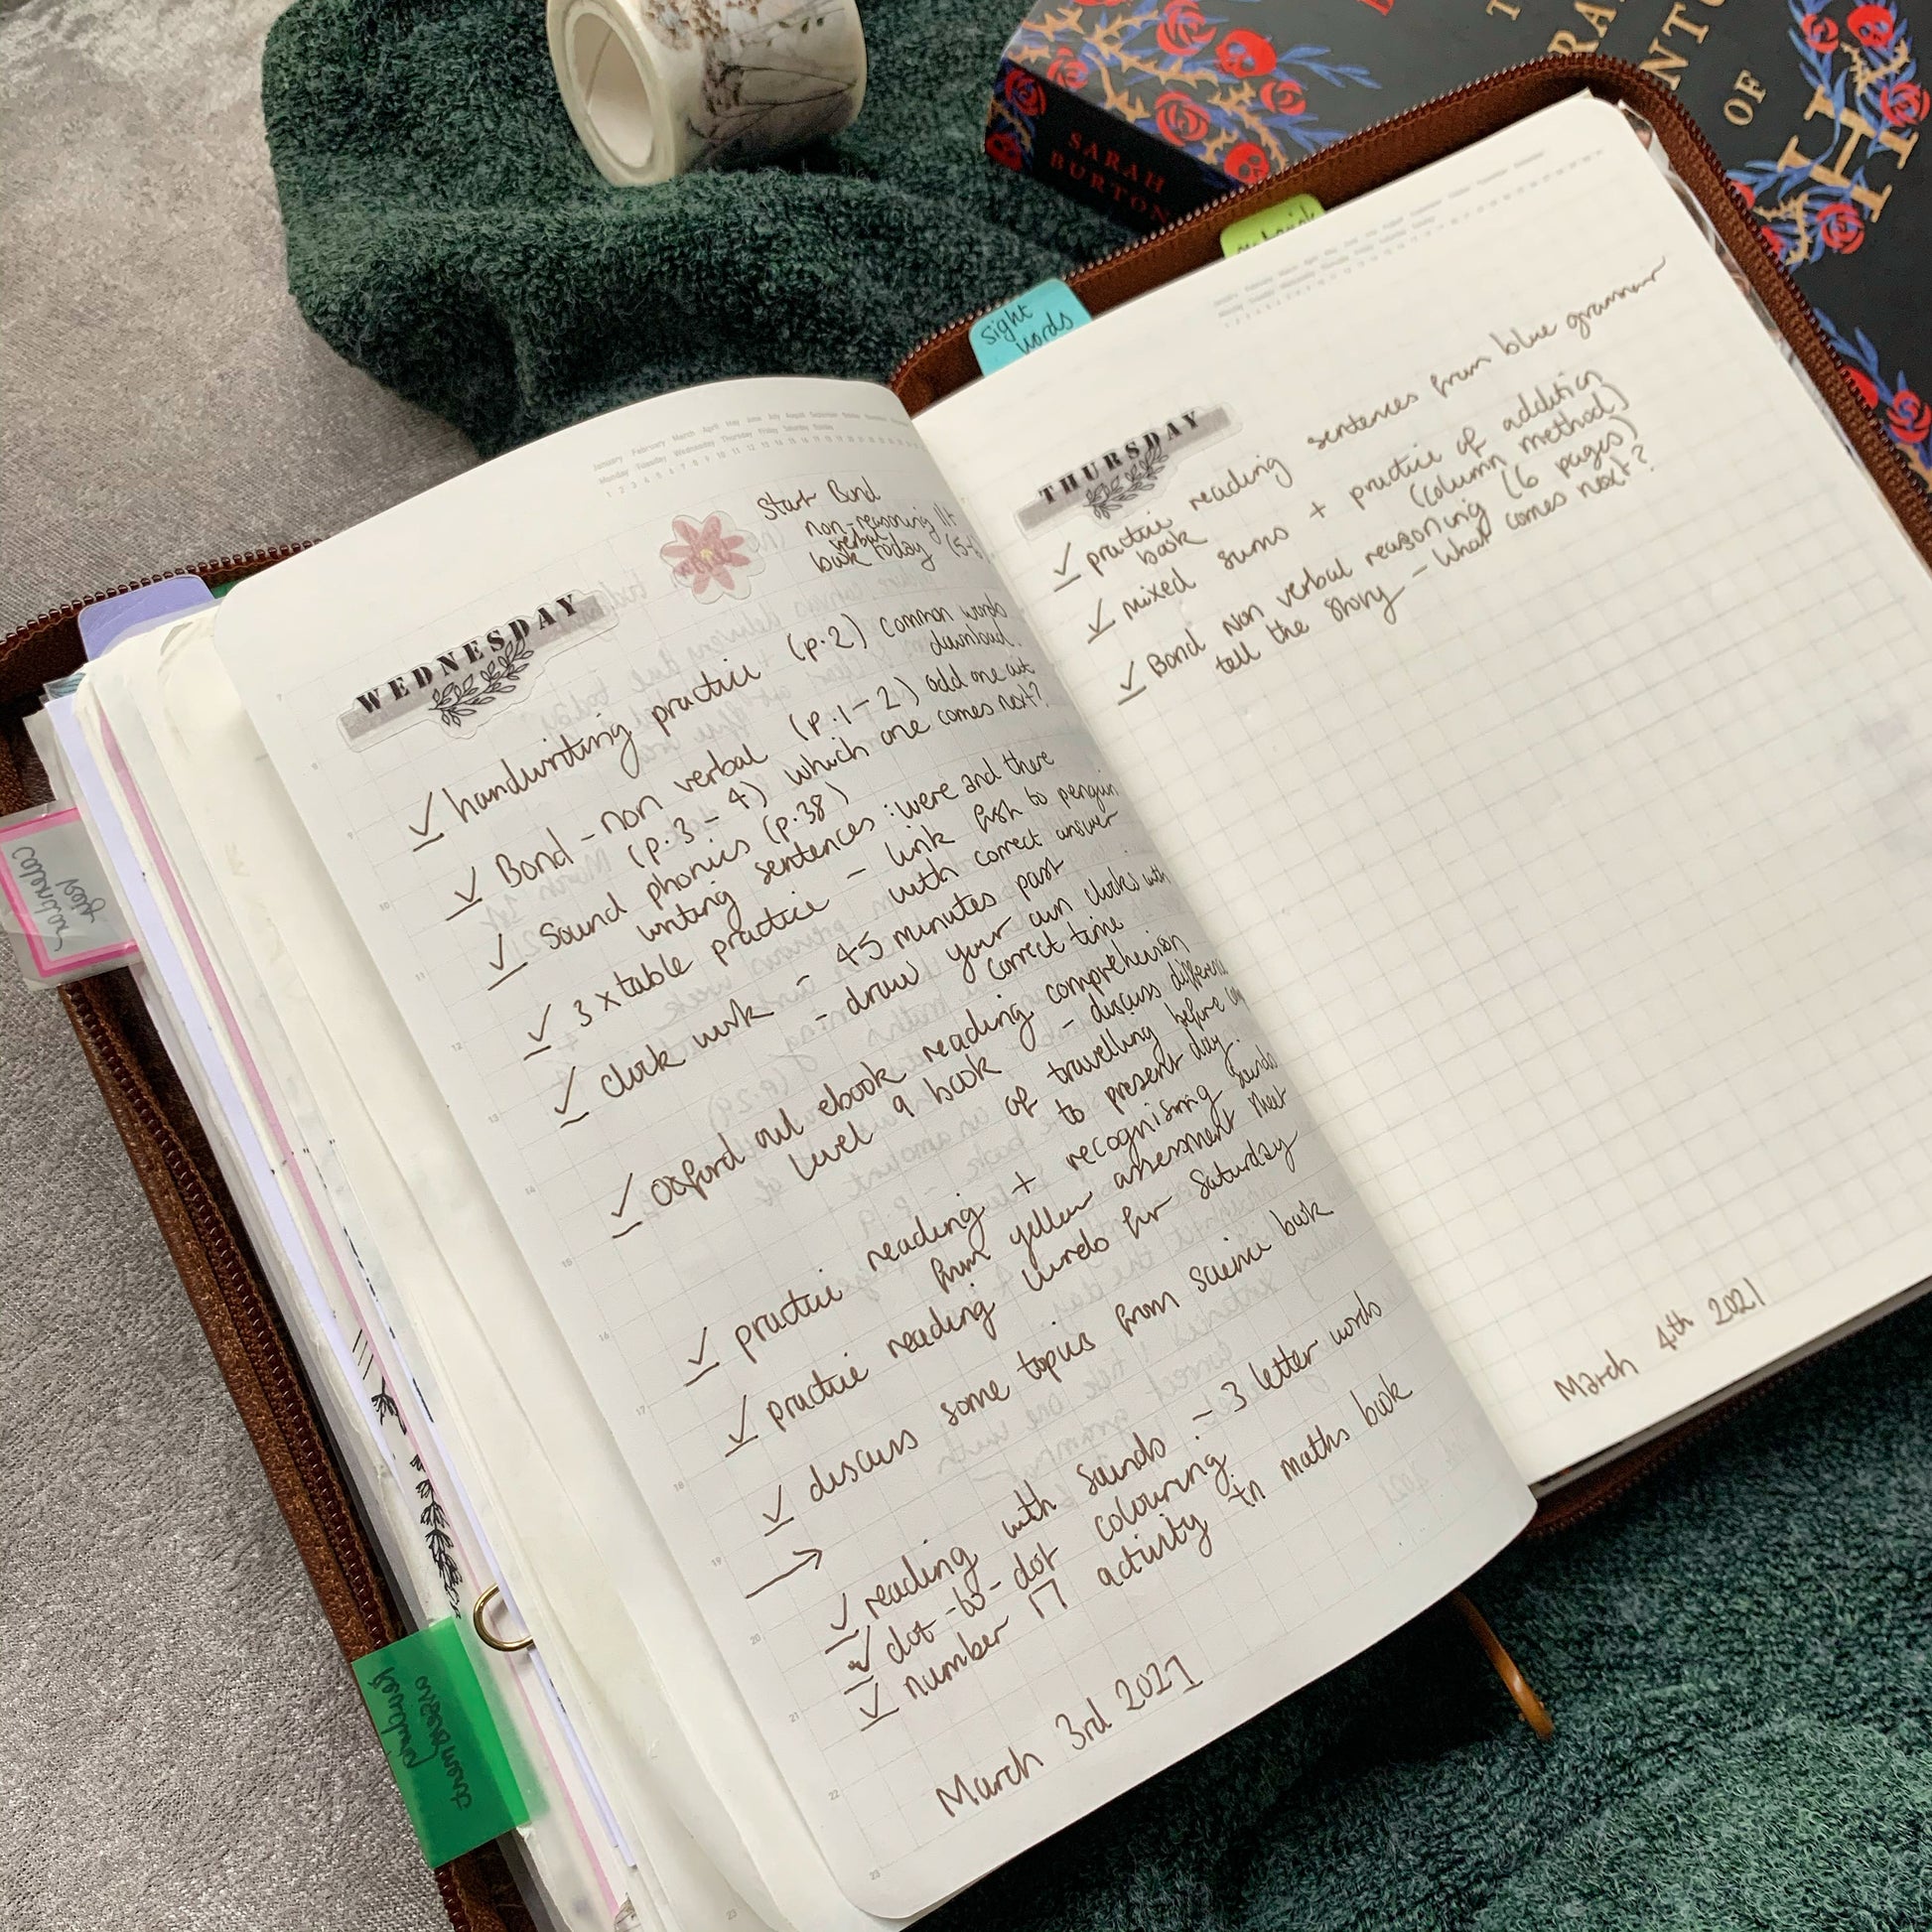 Start Bond
non-reasoning 11+
verbal
book today (5-
WEDNESDAY
handwriting practice (p.2) common words
download.
Bond - non verbal (p.1-2) odd one out
(p.3-4) which one comes next?
Sound phonics (p.38)
writing sentences: were and there
3x table practice - link fish to penguin
with correct answer
clock work - 45 minutes past
- draw your own clocks with
correct time
oxford owl ebook reading comprehension
level 9 book - discuss differen
of travelling before
to present day
practice reading + recognising sounds
from yellow assessment sheet
practice reading words for Saturday
discuss some topics from science book
→
reading with sounds :- 3 letter words
dot-to-dot colouring
number 17 activity in maths book
March 3rd 2021
THURSDAY
practice reading sentences from blue grammar
book
mixed sums + practice of addition
(column method)
Bond Non verbal reasoning (6 pages)
tell the story - what comes next?
March 4th 2021
sight
words
SARAH
BURTON
OF